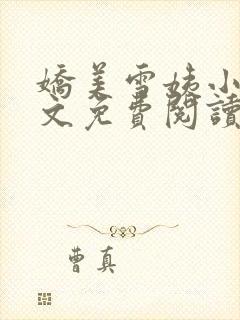 嬌美雪姨小
文免費閱讀
曹真